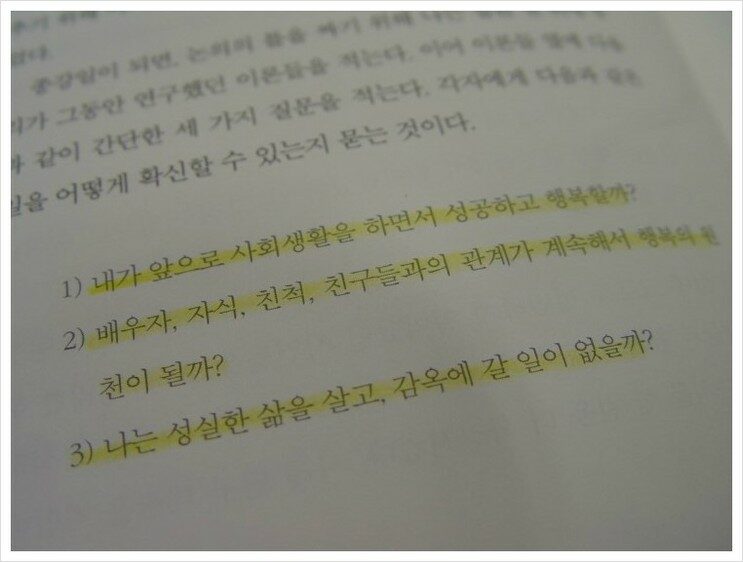 종강일이 되면, 논의의 틀을 짜기 위해 나는
리가 그동안 연구했던 이론들을 적는다. 이어 이론들 옆에 다음
과 같이 간단한 세 가지 질문을 적는다. 각자에게 다음과 같은
일을 어떻게 확신할 수 있는지 묻는 것이다.
1) 내가 앞으로 사회생활을 하면서 성공하고 행복할까?
2) 배우자, 자식, 친척, 친구들과의 관계가 계속해서 행복의 원
천이 될까?
3) 나는 성실한 삶을 살고, 감옥에 갈 일이 없을까?